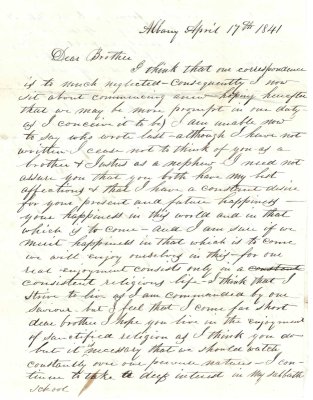 Albany April 17th 1841
Dear Brother
I think that our correspondence
is to much neglected - Consequently I now
sit about commencing anew - hoping hereafter
that we may be more prompt in our duty
as I conceive it to be) I am unable now
to say who wrote last - although I have not
written I cease not to think of you as a
brother & as a nephew I need not
assure you that you both have my best
affections & that I have a constant desire
for your present and future happiness -
your happiness in this world and in that
which is to come - and I am sure if we
merit happiness in that which is to come
we will enjoy ourselves in this - for our
real enjoyment consists only in a constant
consistent religious life - I think that I
strive to live as I am commanded by our
Saviour but I feel that I come far short
dear brother I hope you live in the enjoyment
of sanctified religion as I think you do
but it is necessary that we should watch
constantly over our natures - I con
tinue to take a deep interest in my Sabbath
School